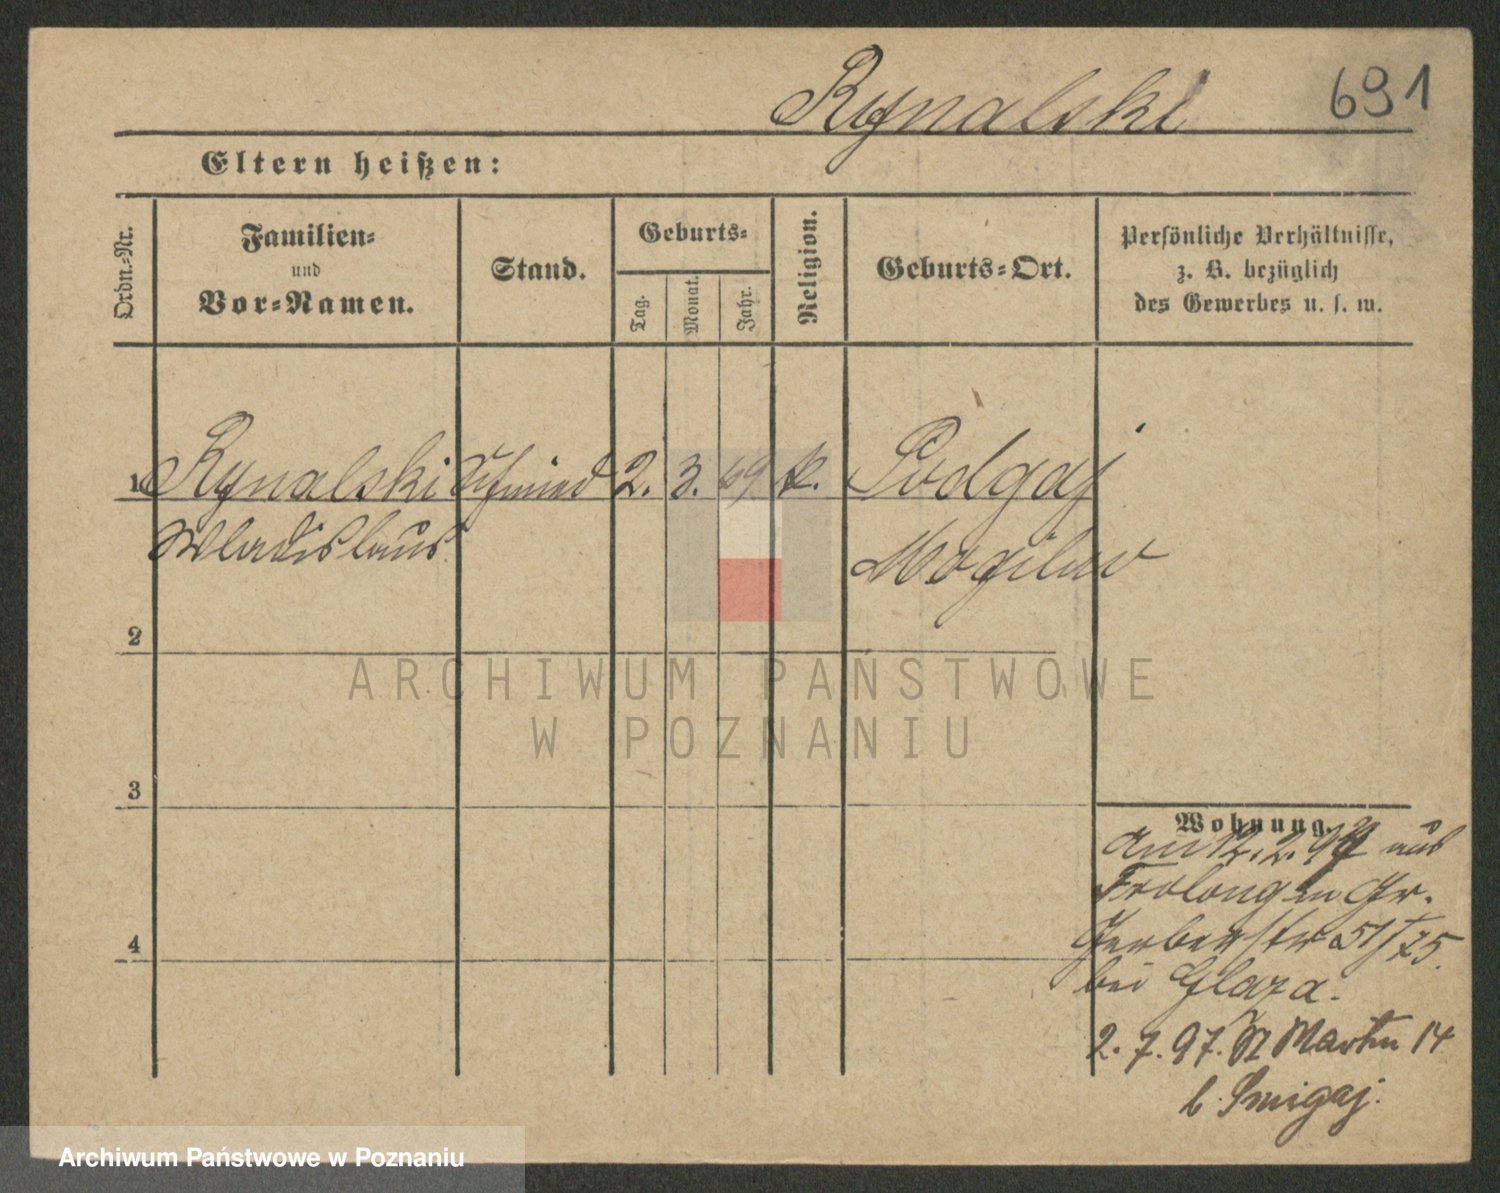 Rynalski
691
Eltern heißen:
Ordn.-Nr.
Familien-
und
Vor-Namen.
Stand.
Geburts-
Tag.
Monat.
Jahr.
Religion.
Geburts-Ort.
Persönliche Verhältnisse,
z. B. bezüglich
des Gewerbes u. s. w.
1 Rynalski Schmied 2. 3. 69 k. Podgaj
Wladislaus Mogilno
2
3
4
Wohnung.
am 12. 2. 97 aus
in Gr.
Gerberstr 51/
bei Glaza.
2. 7. 97. St Martin 14
b. Smigaj.
ARCHIWUM PAŃSTWOWE
W POZNANIU
Archiwum Państwowe w Poznaniu